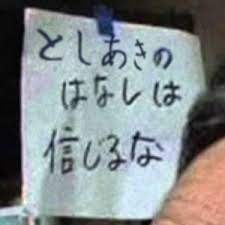 としあきの
はなしは
信じるな